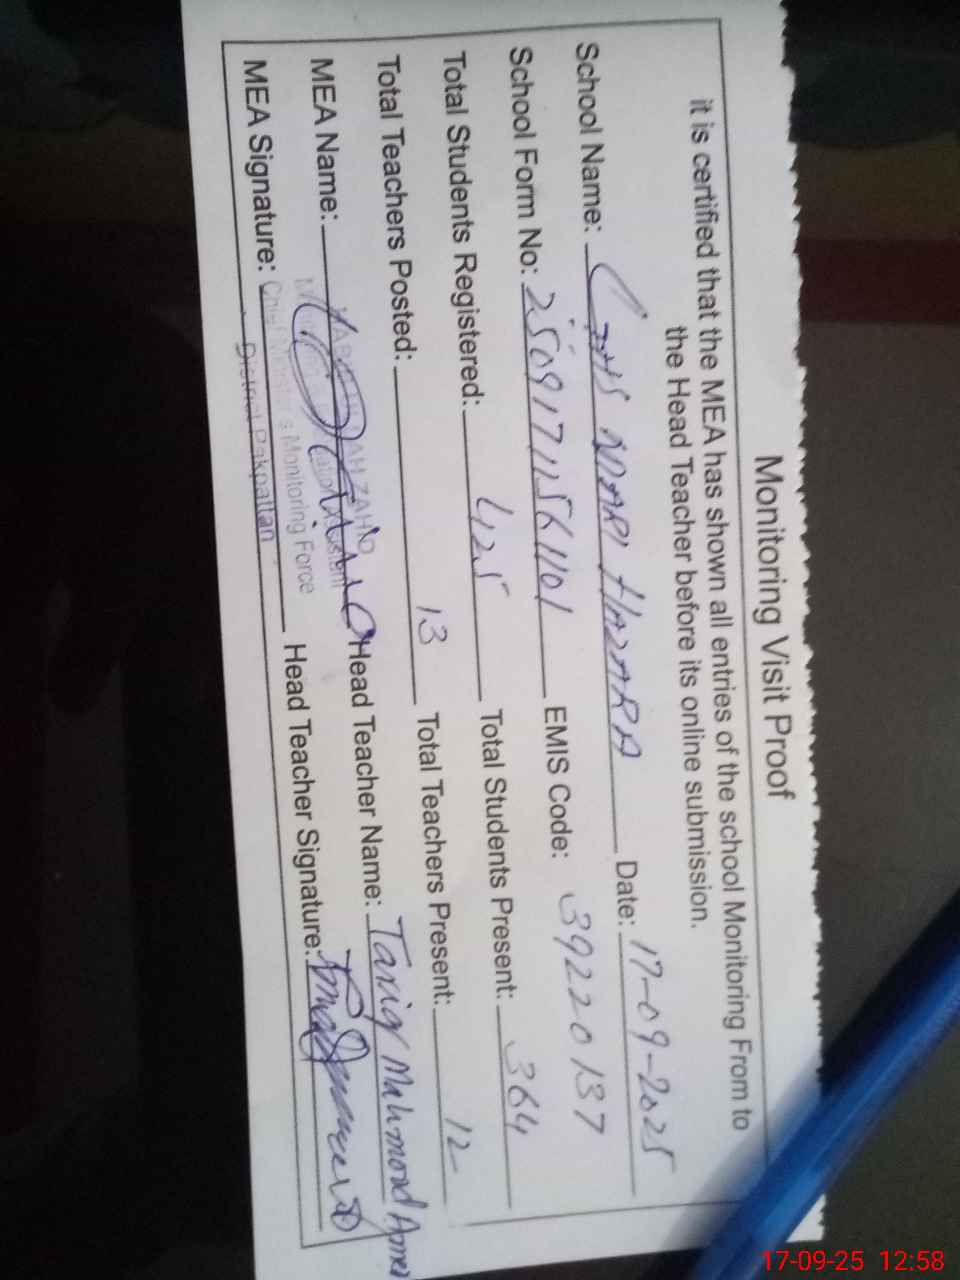 Monitoring Visit Proof
it is certified that the MEA has shown all entries of the school Monitoring From to
the Head Teacher before its online submission.
School Name: GHS NOARI HAZARA Date: 17-09-2025
School Form No: EMIS Code: 39220137
Total Students Registered: 425 Total Students Present: 364
Total Teachers Posted: 13 Total Teachers Present: 12
MEA Name: Head Teacher Name: Tariq Mahmood
ZAHID
MEA Signature: Head Teacher Signature:
Chief Minister's Monitoring Force
District Pakpattan
17-09-25 12:58